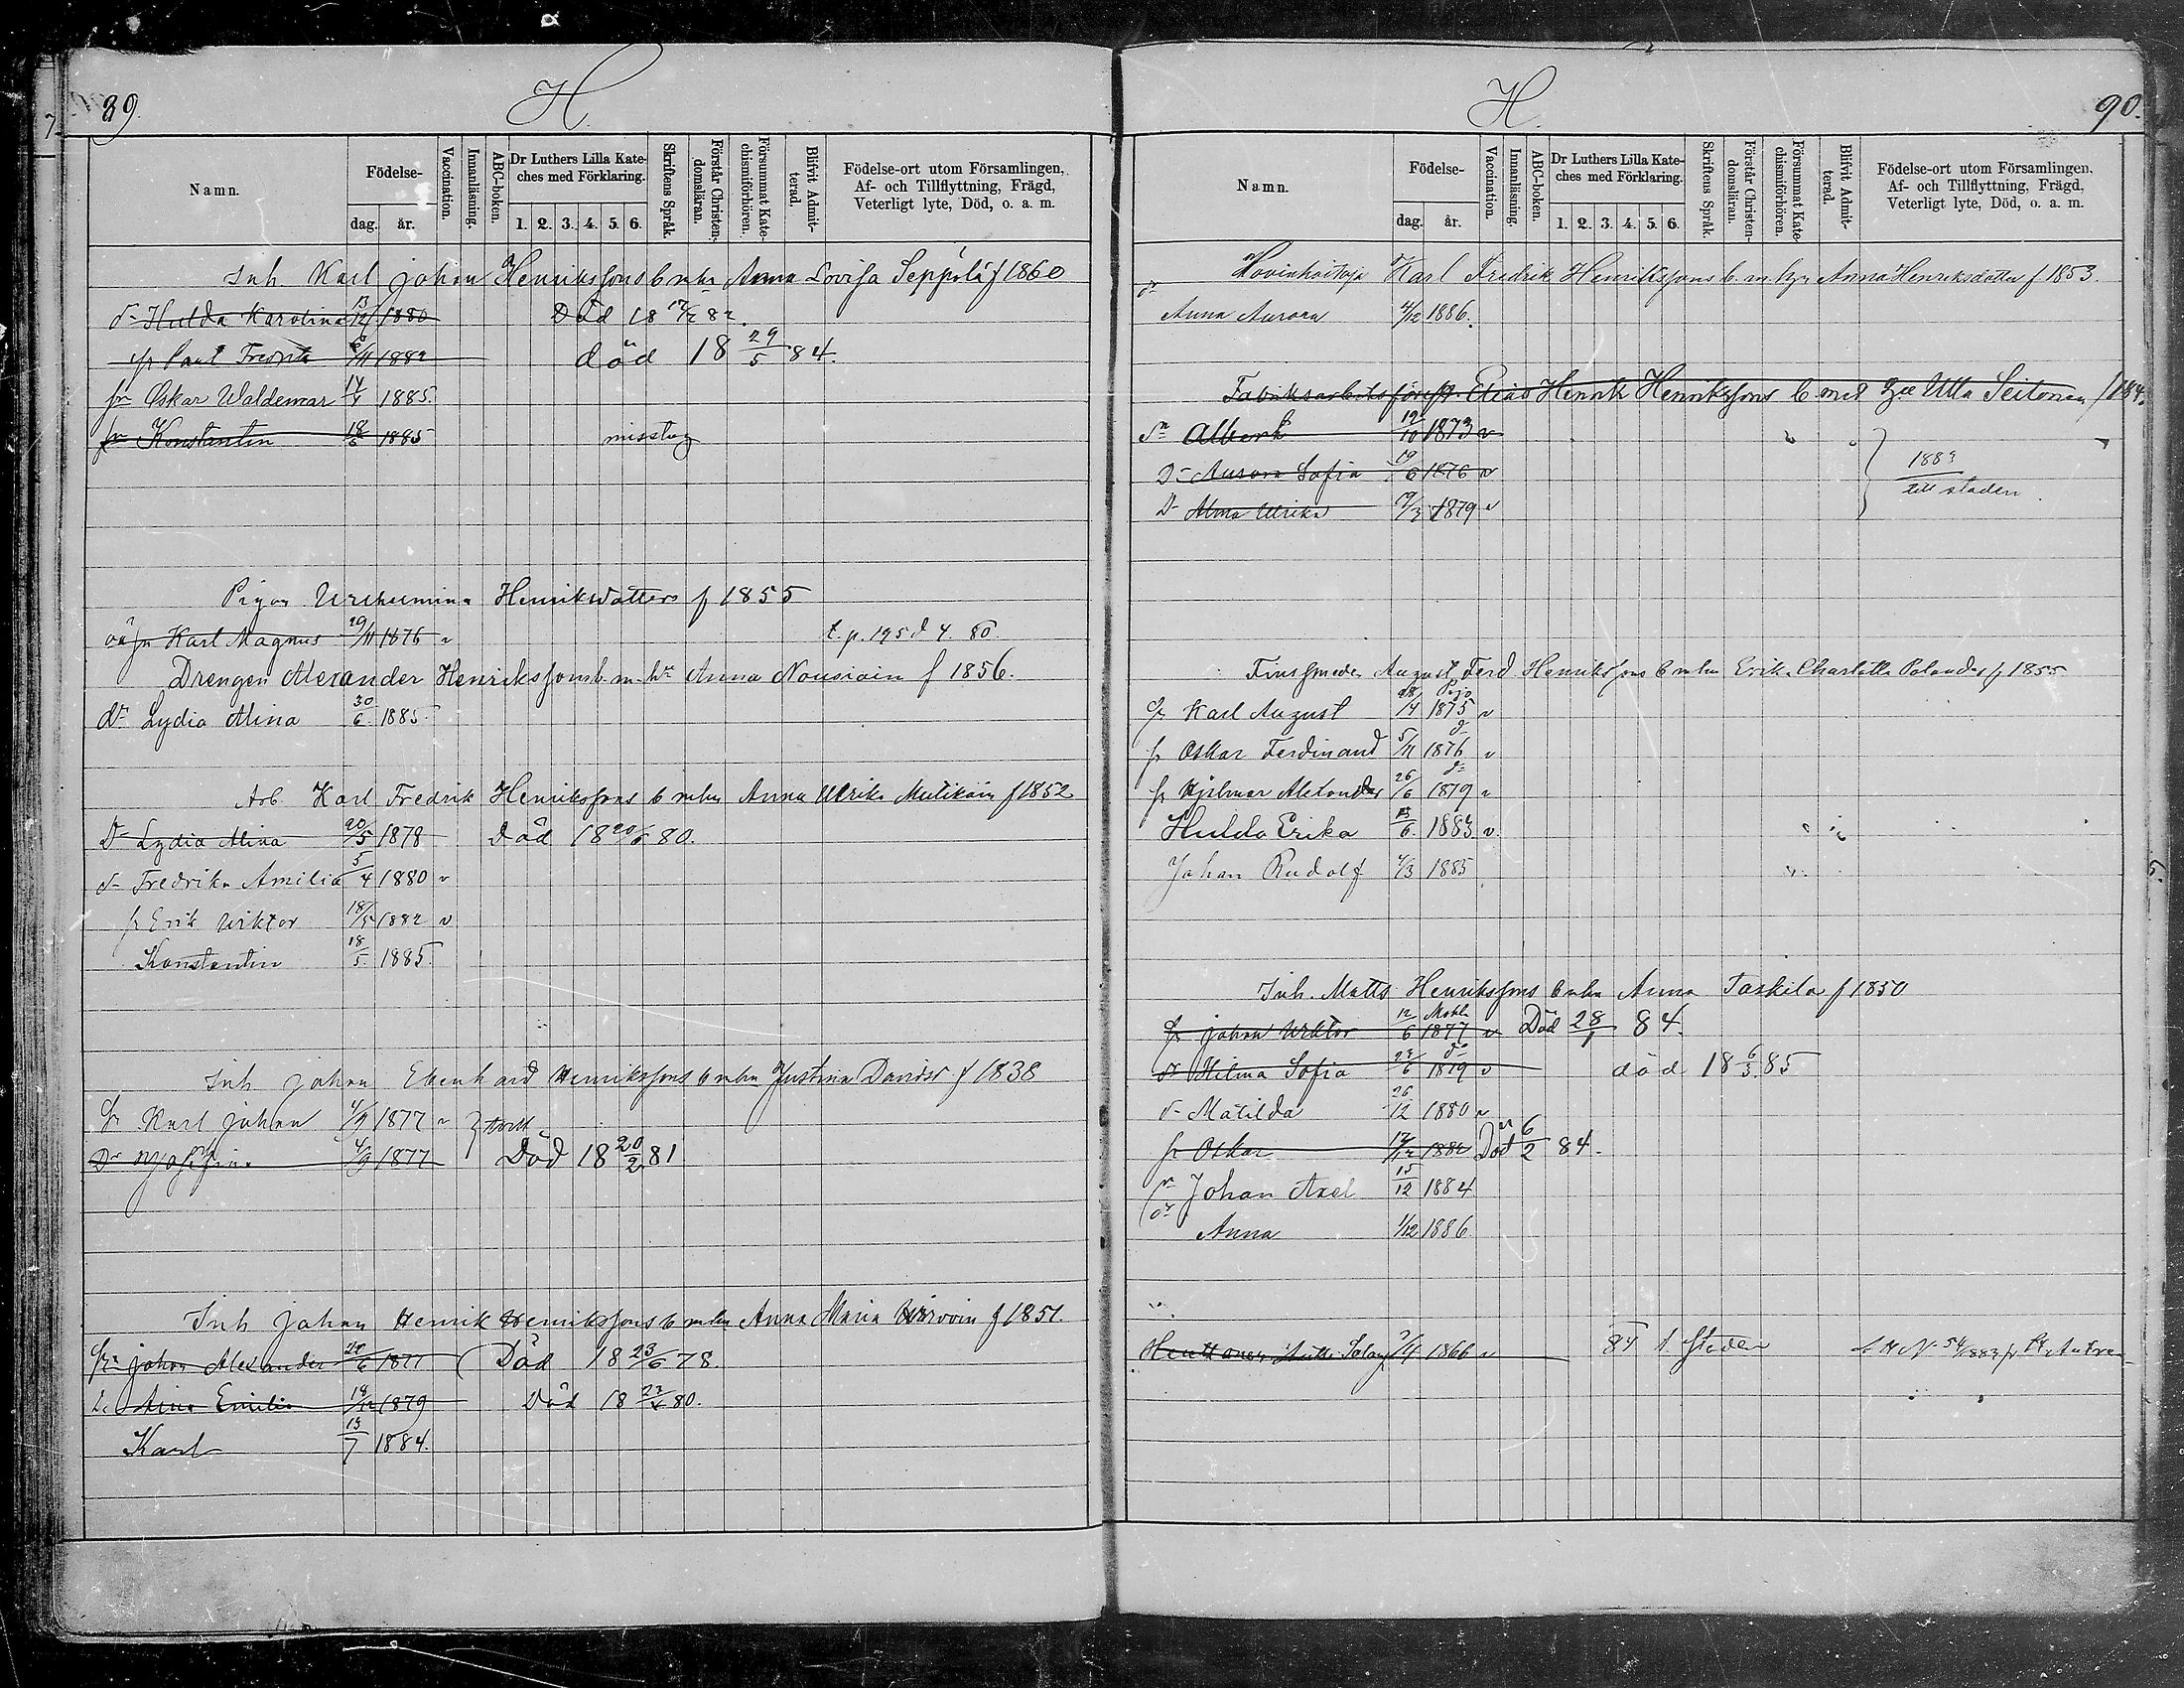 89.
H.
Namn.
Födelse-
dag.
år.
Vaccination.
Innanläsning.
ABC-boken.
Dr Luthers Lilla Kate-
ches med Förklaring.
1. 2. 3. 4. 5. 6.
Skriftens Språk.
Förstår Christen-
domsläran.
Försummat Kate-
chismiförhören.
Blifvit Admit-
terad.
Födelse-ort utom Församlingen,
Af- och Tillflyttning, Frägd,
Veterligt lyte, Död, o. a. m.
Inh. Karl Johan Henrikssons b m hu Anna Lovisa Seppälä f 1860
Hulda Karolina 13/12 1880 Död 18 17/2 82.
Paul Fredrik /11 1882 död 18 29/5 84.
Oskar Waldemar 14/4 1885
Konstantin 18/5 1885 misstag
Pigan Wilhelmina Henriksdotters f 1855
oä sn Karl Magnus 29/11 1876 v t. p. 195 d 4 80
Drengen Alexander Henrikssons b. m. hu Anna Nousiain f 1856.
dr Lydia Alina 30/6 1885
Arb. Karl Fredrik Henrikssons b m hu Anna Ulrika Mutikain f 1852
Dr Lydia Alina 20/5 1878 Död 18 20/6 80.
Fredrika Amilia 5/4 1880 v
Erik Wiktor 18/5 1882 v
Konstantin 18/5 1885.
Inh Johan Ebenhard Henrikssons b m hu Justina Davidsr f 1838
Karl Johan 4/9 1877 v
Dr Josefina 4/9 1877 Död 18 20/2 81
Inh Johan Henrik Henrikssons b m hu Anna Maria f 1851.
Johan Alexander /6 1877 Död 18 23/6 78.
Aina Emilia 18/12 1879 Död 18 80.
Karl 13/7 1884.
H.
90.
Namn.
Födelse-
dag.
år.
Vaccination.
Innanläsning.
ABC-boken.
Dr Luthers Lilla Kate-
ches med Förklaring.
1. 2. 3. 4. 5. 6.
Skriftens Språk.
Förstår Christen-
domsläran.
Försummat Kate-
chismiförhören.
Blifvit Admit-
terad.
Födelse-ort utom Församlingen,
Af- och Tillflyttning, Frägd,
Veterligt lyte, Död, o. a. m.
Karl Fredrik Henrikssons b. m. Anna Henriksdotter f 1853.
Anna Aurora 4/12 1886.
Elias Henrik Henrikssons b med Ulla Seitonen
Albert 19/10 1873 v
Aurora Sofia 19/6 1876 v
1883
till staden
Alma Ulrika 19/3 1879 v
August Ferd Henrikssons b m hu Erika Charlotta Polander f 1855
Karl August 28/4 1875 v
Oskar Ferdinand 5/11 1876 v
Hjalmar Alexander 26/6 1879 v
Hulda Erika /6 1883 v
Johan Rudolf 4/3 1885
Inh. Matts Henrikssons b m hu Anna Taskila f 1850
Johan Wiktor 12/6 1877 v Död 28/1 84.
Hilma Sofia /6 1879 v död 18 6/3 85
Matilda 26/12 1880 v
Oskar 17/12 1882 Död 6/2 84.
Johan Axel 15/12 1884
Anna 1/12 1886.
Henttonen /4 1866 v 84 t. Staden